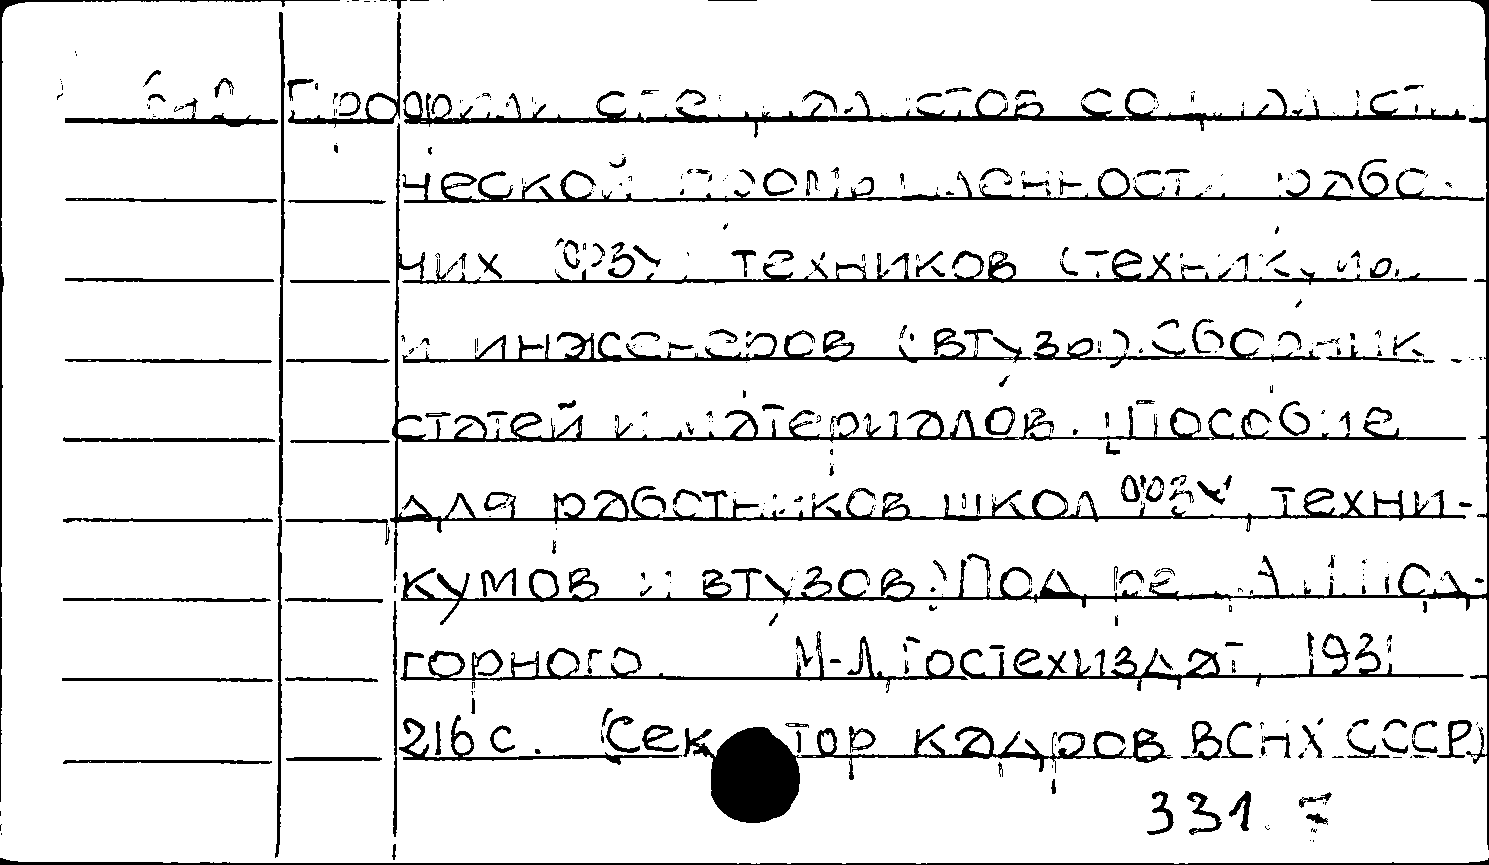 Профили специалистов социалисти
ческой промышленности рабо-
чих ФЗУ, техников (техникумо
и инженеров (втузы). Сборник
статей и материалов. [Пособие
для работников школ ФЗУ, техни-
кумов и втузов.] Под ред. А. Под-
горного. М-Л, Гостехиздат, 1931
216 с. (Сектор кадров ВСНХ СССР)
331.7